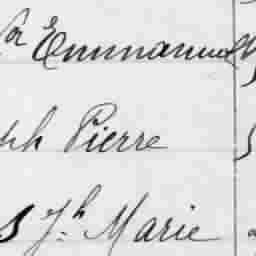 Emmanuel
ph Pierre
s J.h Marie